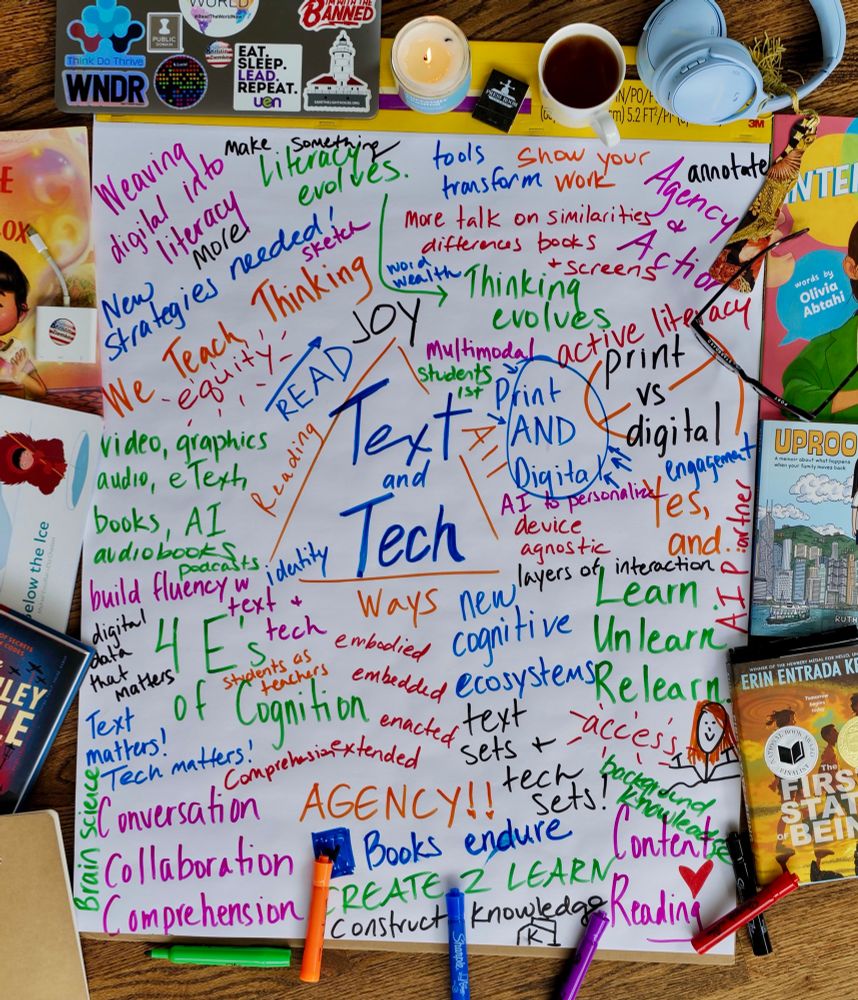 WORLD
#ReadTheWorldNow
I'M WITH THE
BANNED
Think Do Thrive
PUBLIC
DOMAIN
WNDR
EAT.
SLEEP.
LEAD.
REPEAT.
uen
3M
5.2 FT²/P
Weaving
digital into
literacy
make something
Literacy
evolves.
tools
transform
show your
work
Agency
&
Action
annotate
more
sketch
New
Strategies needed!
More talk on similarities
differences books
+ screens
word
wealth
Thinking
evolves
We Teach Thinking
equity
READ
JOY
Multimodal
students
1st
active literacy
print
vs
digital
Print
AND
Digital
Text
and
Tech
Reading
Art
video, graphics
audio, eText,
books, AI
audiobooks
podcasts
engagement
AI to personalize
device
agnostic
Yes,
and..
AI Partner
layers of interaction
identity
build fluency w
text +
tech
digital
data
that
matters
Ways
new
cognitive
ecosystems
Learn
Unlearn
Relearn
4 E's
of Cognition
students as
teachers
embodied
embedded
enacted
extended
Comprehension
Text
matters!
Tech matters!
text
sets +
tech
sets!
access
background
knowledge
Brain science
Conversation
Collaboration
Comprehension
AGENCY!!
Books endure
CREATE 2 LEARN
construct knowledge
Content
Reading
Sharpie
words by
Olivia
Abtahi
UPROO
A memoir about what happens
when your family moves back
RUTH
ERIN ENTRADA KE
The
FIRS
STAT
of BEIN
below the Ice
LEY
LE
OX